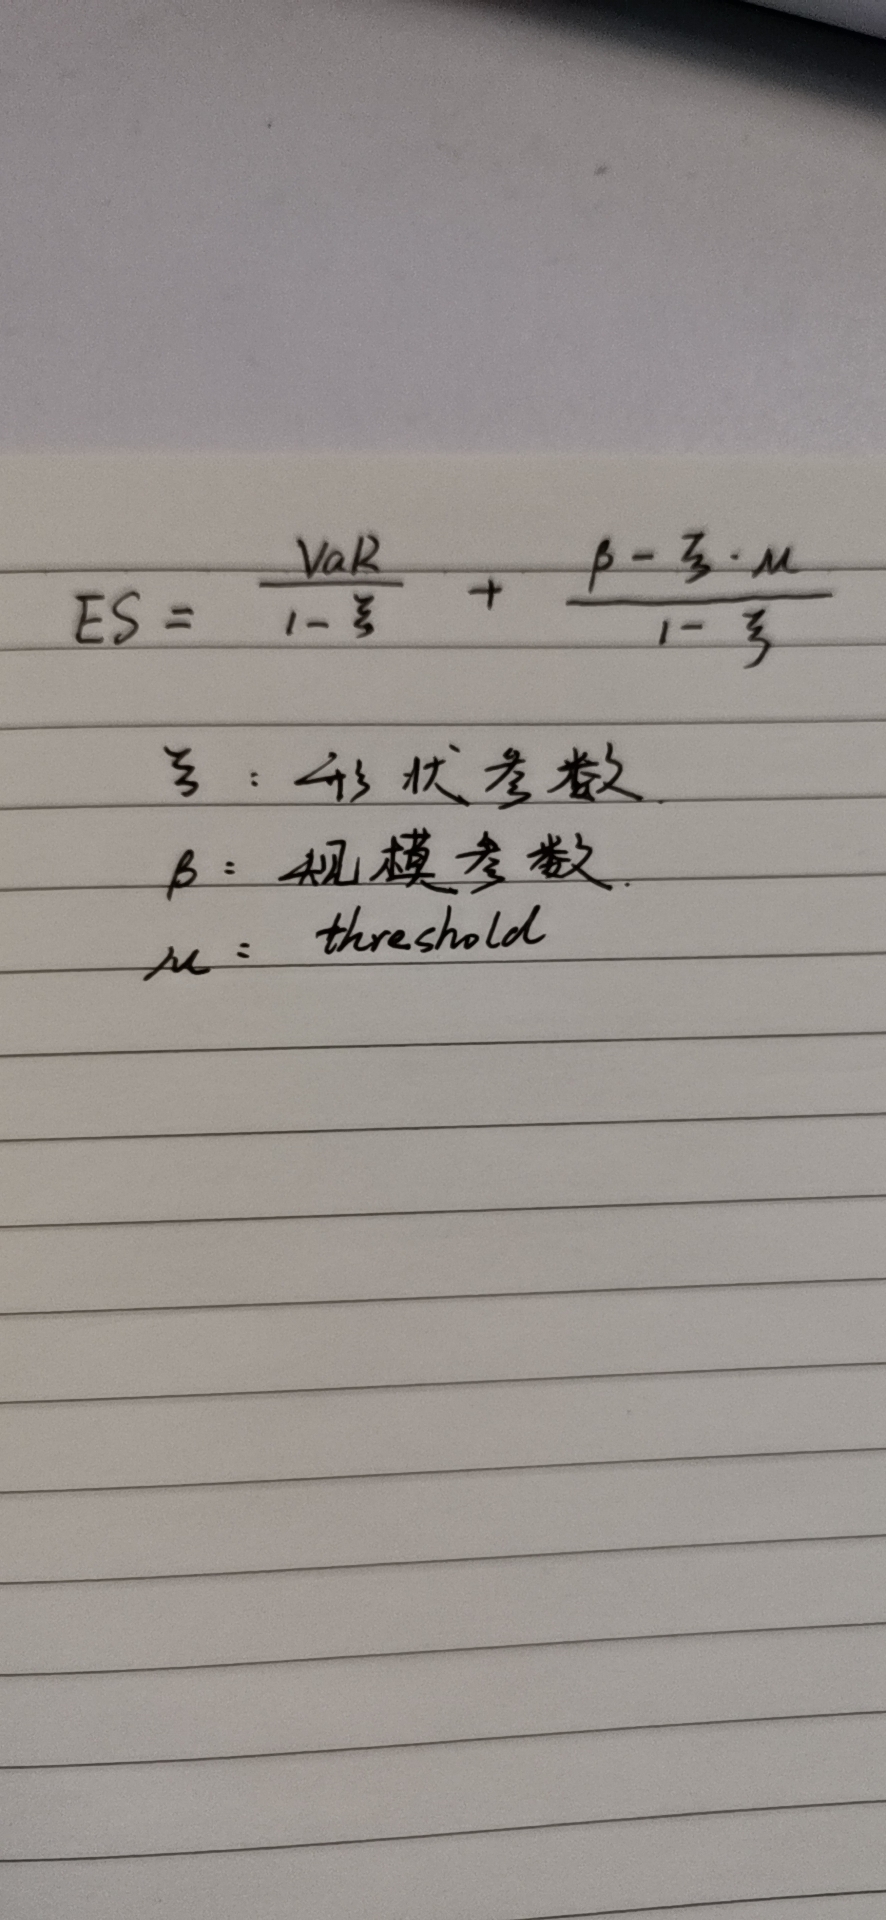 ES = VaR / (1 - ξ) + (β - ξ · μ) / (1 - ξ)
ξ : 形状参数.
β : 规模参数.
μ : threshold